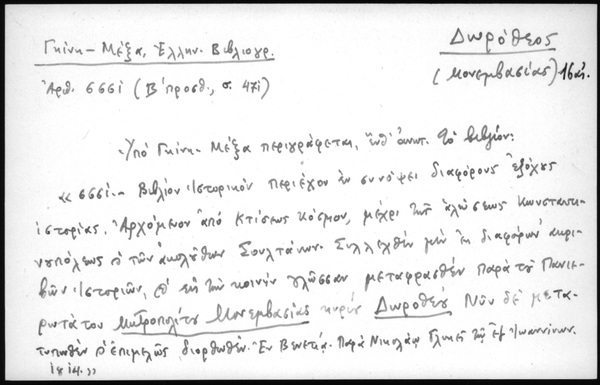 Γκίνη - Μέξα, Ἑλλην. Βιβλιογρ.
Δωρόθεος
(Μονεμβασίας) 16 αἰ.
Ἀριθ. 6661 (Β΄ προσθ., σ. 471)
Ὑπό Γκίνη - Μέξα περιγράφεται, ὑπ' ἀριθ. τό βιβλίον:
«6661.- Βιβλίον Ἱστορικόν περιέχον ἐν συνόψει διαφόρους ἐξόχους
ἱστορίας. Ἀρχόμενον ἀπό κτίσεως κόσμου, μέχρι τῆς ἁλώσεως Κωνσταντι-
νουπόλεως καί τῶν ἀκολούθων Σουλτάνων. Συλλεχθέν μέν ἐκ διαφόρων ἀκρι-
βῶν ἱστοριῶν, καί εἰς τήν κοινήν γλῶσσαν μεταφρασθέν παρά τοῦ Πανιε-
ρωτάτου Μητροπολίτου Μονεμβασίας κυρίου Δωροθέου. Νῦν δέ μετα-
τυπωθέν καί ἐπιμελῶς διορθωθέν. Ἐν Βενετίᾳ. Παρά Νικολάῳ Γλυκεῖ τῷ ἐξ Ἰωαννίνων.
1814.»